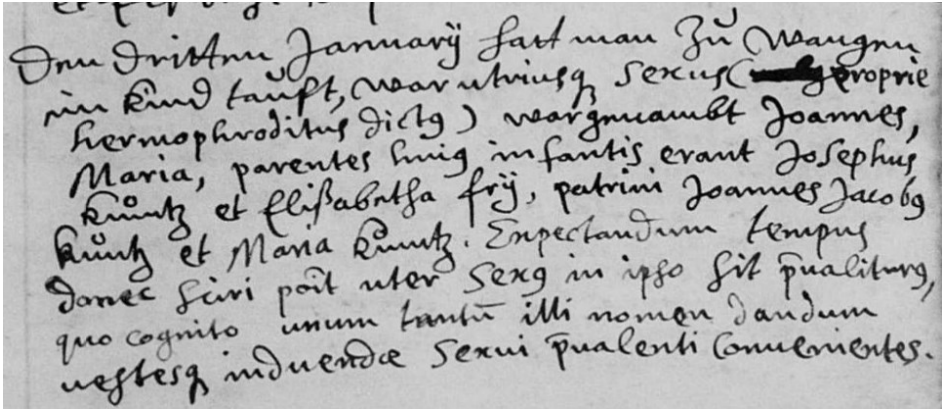 Den dritten Januarÿ hatt man Zů Wangen
ein kind taůfft, war utriusq sexus (proprie
hermophroditus dictus) war genambt Joannes,
Maria, parentes huius infantis erant Josephus
Kůntz et Elißabetha frÿ, patrini Joannes Jacobus
Kůntz et Maria Kůntz. Expectandum tempus
donec sciri poit uter sexus in ipso sit pualiturus,
quo cognito unum tantū illi nomen dandum
vestesq induendæ sexui pualenti convenientes.